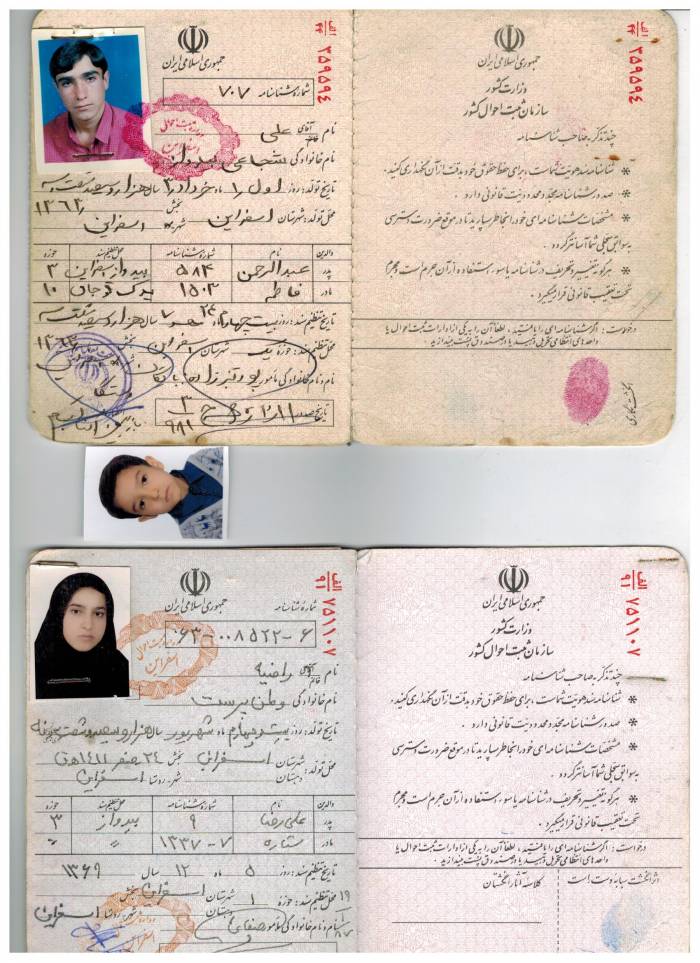 جمهوری اسلامی ایران
شماره شناسنامه ۷۰۷
نام آقای علی
نام خانوادگی شجاعی پیدواز
تاریخ تولد: روز اول ۱ ماه خرداد ۳ سال هزار و سیصد و شصت و سه
۱۳۶۳
محل تولد: شهرستان اسفراین بخش شهر اسفراین
والدین نام شماره شناسنامه محل تنظیم سند حوزه
پدر عبدالرحمن ۵۸۴ پیدواز اسفراین ۳
مادر فاطمه ۱۵۰۳ قوچان ۱۰
تاریخ تنظیم سند: روز بیست چهارم ۲۴ ماه مهر ۷ سال هزار و سیصد و شصت و سه
۱۳۶۳
محل تنظیم سند: حوزه یک شهرستان اسفراین
نام و نام خانوادگی مامور
تاریخ صدور
الف ۴۴ ۳۵۹۵۹۴
الف ۴۴ ۳۵۹۵۹۴
جمهوری اسلامی ایران
وزارت کشور
سازمان ثبت احوال کشور
چند تذکر به صاحب شناسنامه
* شناسنامه سند هویت شماست، برای حفظ حقوق خود به دقت از آن نگهداری کنید.
* صدور شناسنامه مجدد محدودیت قانونی دارد.
* مشخصات شناسنامه‌ای خود را بخاطر بسپارید تا در موقع ضرورت دسترسی
به سوابق سجلی شما آسانتر گردد.
* هرگونه تغییر و تحریف در شناسنامه یا سوء استفاده از آن جرم است و مجرم
تحت تعقیب قانونی قرار میگیرد.
درخواست: اگر شناسنامه‌ای را یافتید، لطفاً آن را به یکی از ادارات ثبت احوال یا
واحدهای انتظامی تحویل دهید یا در صندوق پست بیندازید.
جمهوری اسلامی ایران
شماره شناسنامه
۰۶۳-۰۰۸۵۲۲-۶
نام راضیه
نام خانوادگی وطن پرست
تاریخ تولد: بیست و چهارم ماه شهریور سال هزار و سیصد و شصت و نه
محل تولد: شهرستان اسفراین بخش ۲۴ صفر ۱۴۱۱ هق
دهستان شهر-روستا اسفراین
والدین نام شماره شناسنامه محل تنظیم سند حوزه
پدر علیرضا ۹ پیدواز ۳
مادر ستاره ۱۳۳۷-۷ " "
تاریخ تنظیم سند: روز ۵ ماه ۱۲ سال ۱۳۶۹
محل تنظیم سند: حوزه ۱ شهرستان اسفراین بخش
دهستان شهر-روستا اسفراین
نام و نام خانوادگی مامور
الف ۹۱ ۷۵۱۱۰۷
الف ۹۱ ۷۵۱۱۰۷
جمهوری اسلامی ایران
وزارت کشور
سازمان ثبت احوال کشور
چند تذکر به صاحب شناسنامه
* شناسنامه سند هویت شماست، برای حفظ حقوق خود به دقت از آن نگهداری کنید.
* صدور شناسنامه مجدد محدودیت قانونی دارد.
* مشخصات شناسنامه‌ای خود را بخاطر بسپارید تا در موقع ضرورت دسترسی
به سوابق سجلی شما آسانتر گردد.
* هرگونه تغییر و تحریف در شناسنامه یا سوء استفاده از آن جرم است و مجرم
تحت تعقیب قانونی قرار میگیرد.
درخواست: اگر شناسنامه‌ای را یافتید، لطفاً آن را به یکی از ادارات ثبت احوال یا
واحدهای انتظامی تحویل دهید یا در صندوق پست بیندازید.
اثر انگشت سبابه دست است
کلاسه آثار انگشتان